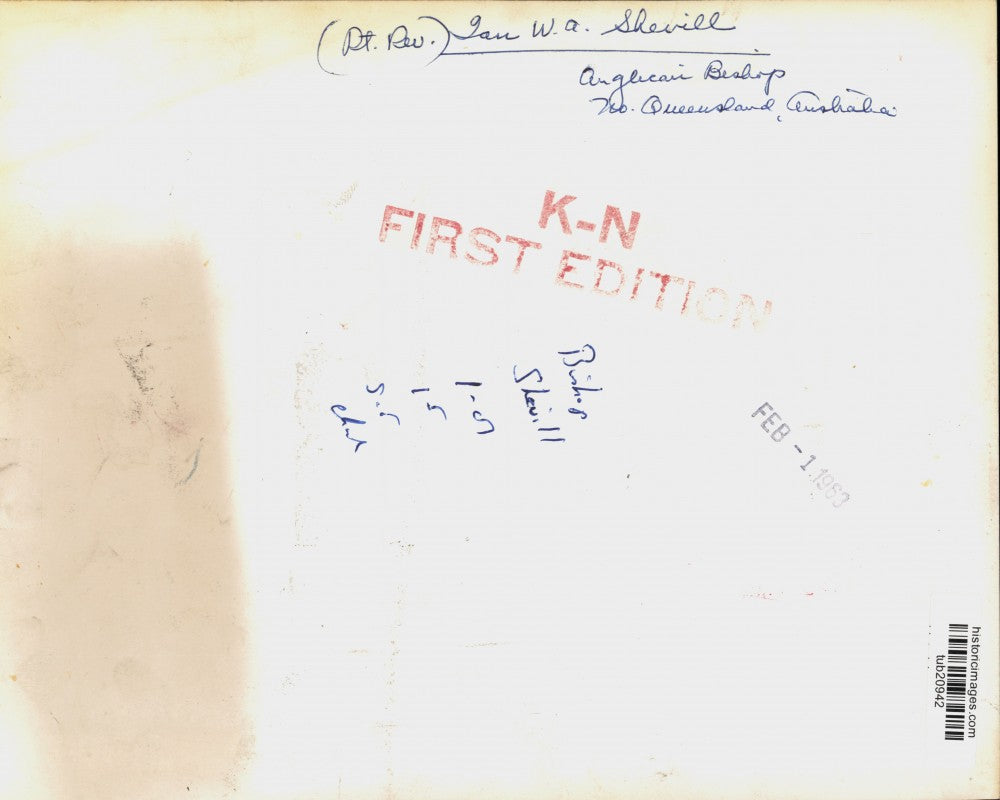 (Rt. Rev.) Ian W. A. Shevill
Anglican Bishop
No. Queensland, Australia
K-N
FIRST EDITION
Bishop
Shevill
1-5
15
5.5
FEB - 1 1963
historicimages.com
tub20942